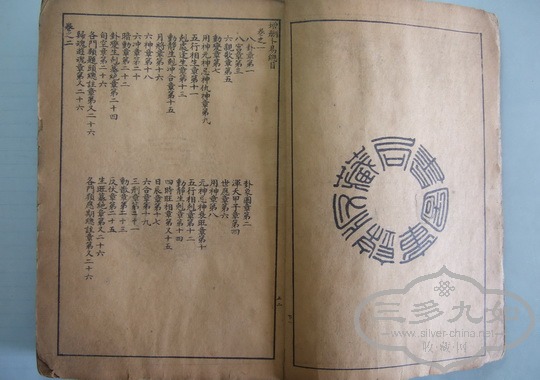 增刪卜易總目
卷之一
八卦章第一 卦象圖章第二
八宮章第三 渾天甲子章第四
六親歌章第五 世應章第六
動變章第七 用神章第八
用神元神忌神仇神章第九 元神忌神衰旺章第十
五行相生章第十一 五行相剋章第十二
剋處逢生章第十三 動靜生剋章第十四
動靜生剋冲合章第十五 四時旺相章第又十五
月將章第十六 日辰章第十七
六神章第十八 六合章第十九
六冲章第二十 三刑章第二十一
暗動章第二十二 動散章第二十三
卦變生剋墓絕章第二十四 反伏章第二十五
旬空章第二十六 生旺墓絕章第又二十六
各門類題頭總註章第又二十六 各門類應期總註章第又二十六
歸魂遊魂章第又二十六
卷之二
三多九如
www.silver-china.net
收藏网